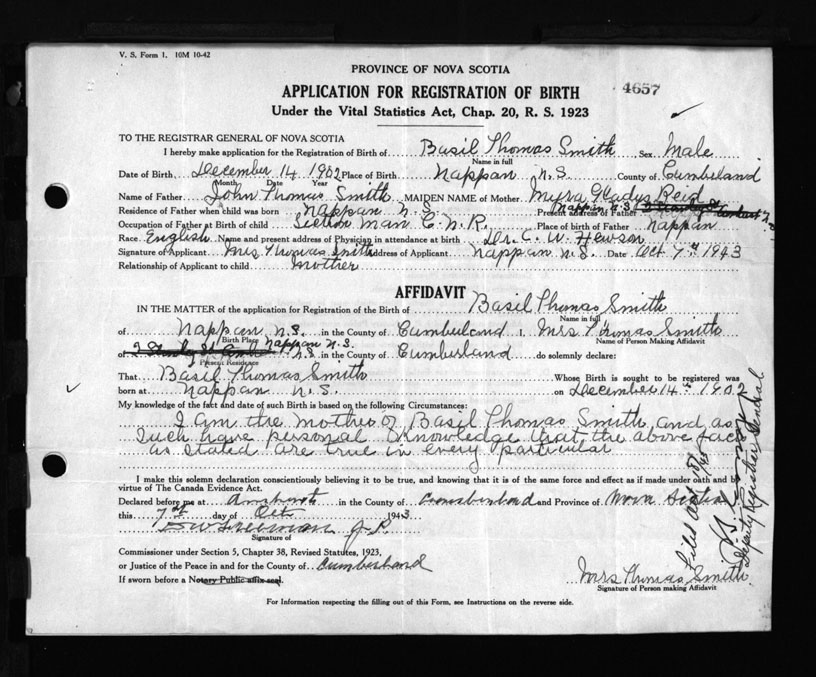 V. S. Form 1. 10M 10-42
PROVINCE OF NOVA SCOTIA
APPLICATION FOR REGISTRATION OF BIRTH
4657
Under the Vital Statistics Act, Chap. 20, R. S. 1923
TO THE REGISTRAR GENERAL OF NOVA SCOTIA
I hereby make application for the Registration of Birth of Basil Thomas Smith Sex Male
Name in full
Date of Birth December 14 1902 Place of Birth Nappan N.S. County of Cumberland
Month Date Year
Name of Father John Thomas Smith MAIDEN NAME of Mother Myra Gladys Reid
Residence of Father when child was born Nappan N.S. Present address of Father Nappan N.S.
Occupation of Father at Birth of child Section Man C.N.R. Place of birth of Father Nappan
Race English Name and present address of Physician in attendance at birth Dr. C. W. Hewson
Signature of Applicant Mrs Thomas Smith Address of Applicant Nappan N.S. Date Oct 7th 1943
Relationship of Applicant to child Mother
AFFIDAVIT
IN THE MATTER of the application for Registration of the Birth of Basil Thomas Smith
Name in full
of Nappan N.S. in the County of Cumberland , Mrs Thomas Smith
Birth Place Name of Person Making Affidavit
of Nappan N.S. in the County of Cumberland do solemnly declare:
Present Residence
That Basil Thomas Smith Whose Birth is sought to be registered was
born at Nappan N.S. on December 14th 1902
My knowledge of the fact and date of such Birth is based on the following Circumstances:
I am the mother of Basil Thomas Smith and as
Such have personal knowledge that the above facts
as stated are true in every particular
I make this solemn declaration conscientiously believing it to be true, and knowing that it is of the same force and effect as if made under oath and by
virtue of The Canada Evidence Act.
Declared before me at Amherst in the County of Cumberland and Province of Nova Scotia
this 7th day of Oct 1943
Freeman J.P.
Signature of
Commissioner under Section 5, Chapter 38, Revised Statutes, 1923,
or Justice of the Peace in and for the County of Cumberland
If sworn before a Notary Public affix seal.
Mrs Thomas Smith
Signature of Person making Affidavit
For Information respecting the filling out of this Form, see Instructions on the reverse side.
Filed Oct
Deputy Registrar General